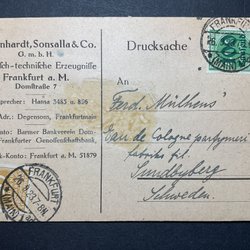 nhardt, Sonsalla & Co.
G. m. b. H.
sch-technische Erzeugnisse
Frankfurt a. M.
Domstraße 7
sprecher: Hansa 3485 u. 816
Adr.: Degensom, Frankfurtmain
onto: Barmer Bankverein Dom-
Frankfurter Genossenschaftsbank,
k-Konto: Frankfurt a. M. 51879
Drucksache
Ferd. Mülhens
Eau de Cologne parfymeri
fabriks fil.
Sundbyberg
Schweden.
FRANKFURT
(MAIN)
FRANKFURT
(MAIN)